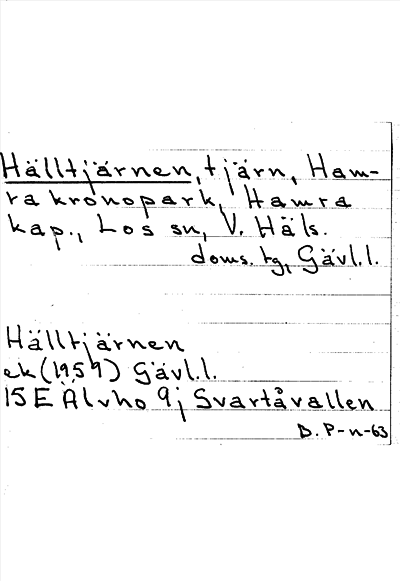 Hälltjärnen, tjärn, Ham-
ra kronopark, Hamra
kap., Los sn, V. Häls.
doms. tg, Gävl.l.
Hälltjärnen
ek (1959) Gävl.l.
15E Älvho 9j Svartåvallen
D. P-n-63